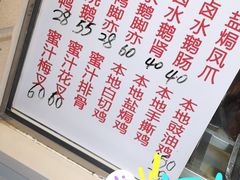 鹅脚亦
28
35
28
60
水鹅肾
40
卤水鹅肠
40
盐焗凤爪
蜜汁梅叉
60
蜜汁花叉
60
蜜汁排骨
本地白切鸡
本地盐焗鸡
本地手撕鸡
本地豉油鸡